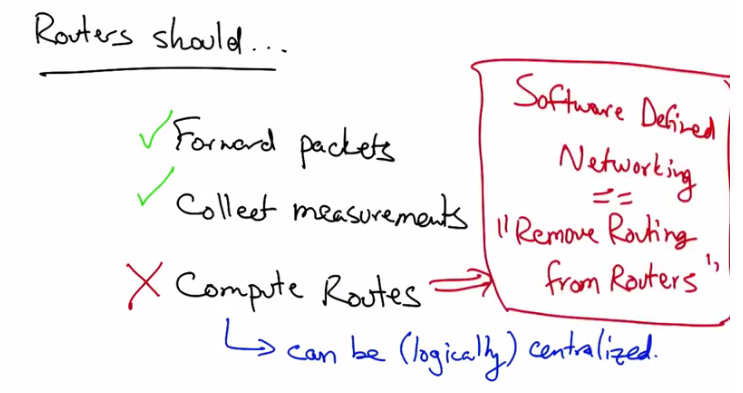 Routers should...
Forward packets
Collect measurements
Compute Routes
can be (logically) centralized.
Software Defined
Networking
==
"Remove Routing
from Routers"